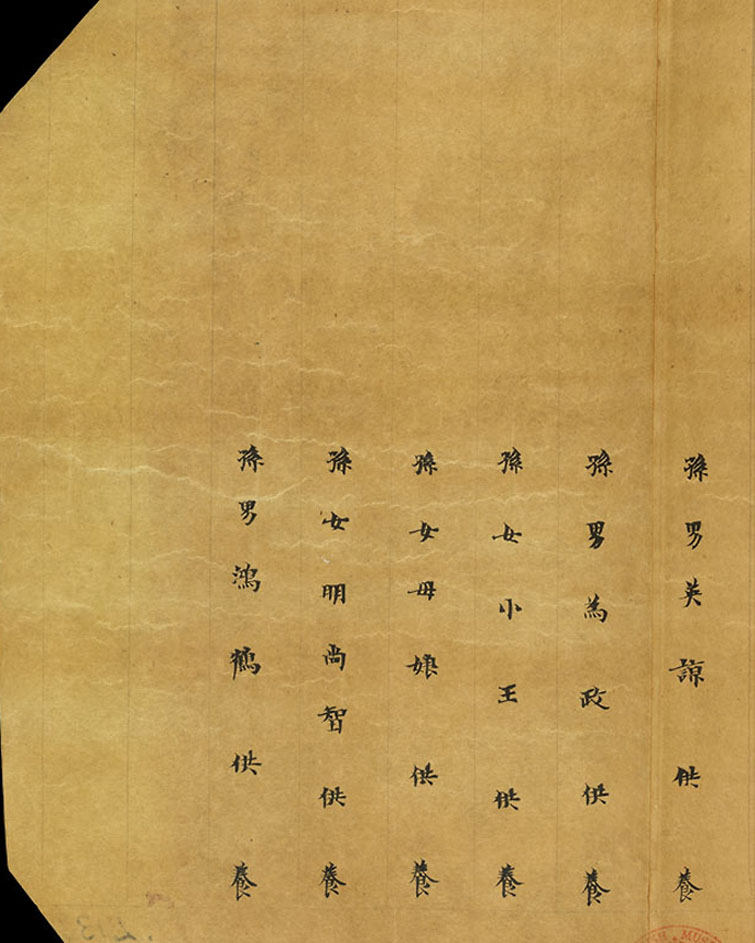 孫男英諒供養
孫男為政供養
孫女小王供養
孫女毋娘供養
孫女明尚智供養
孫男鴻鶴供養